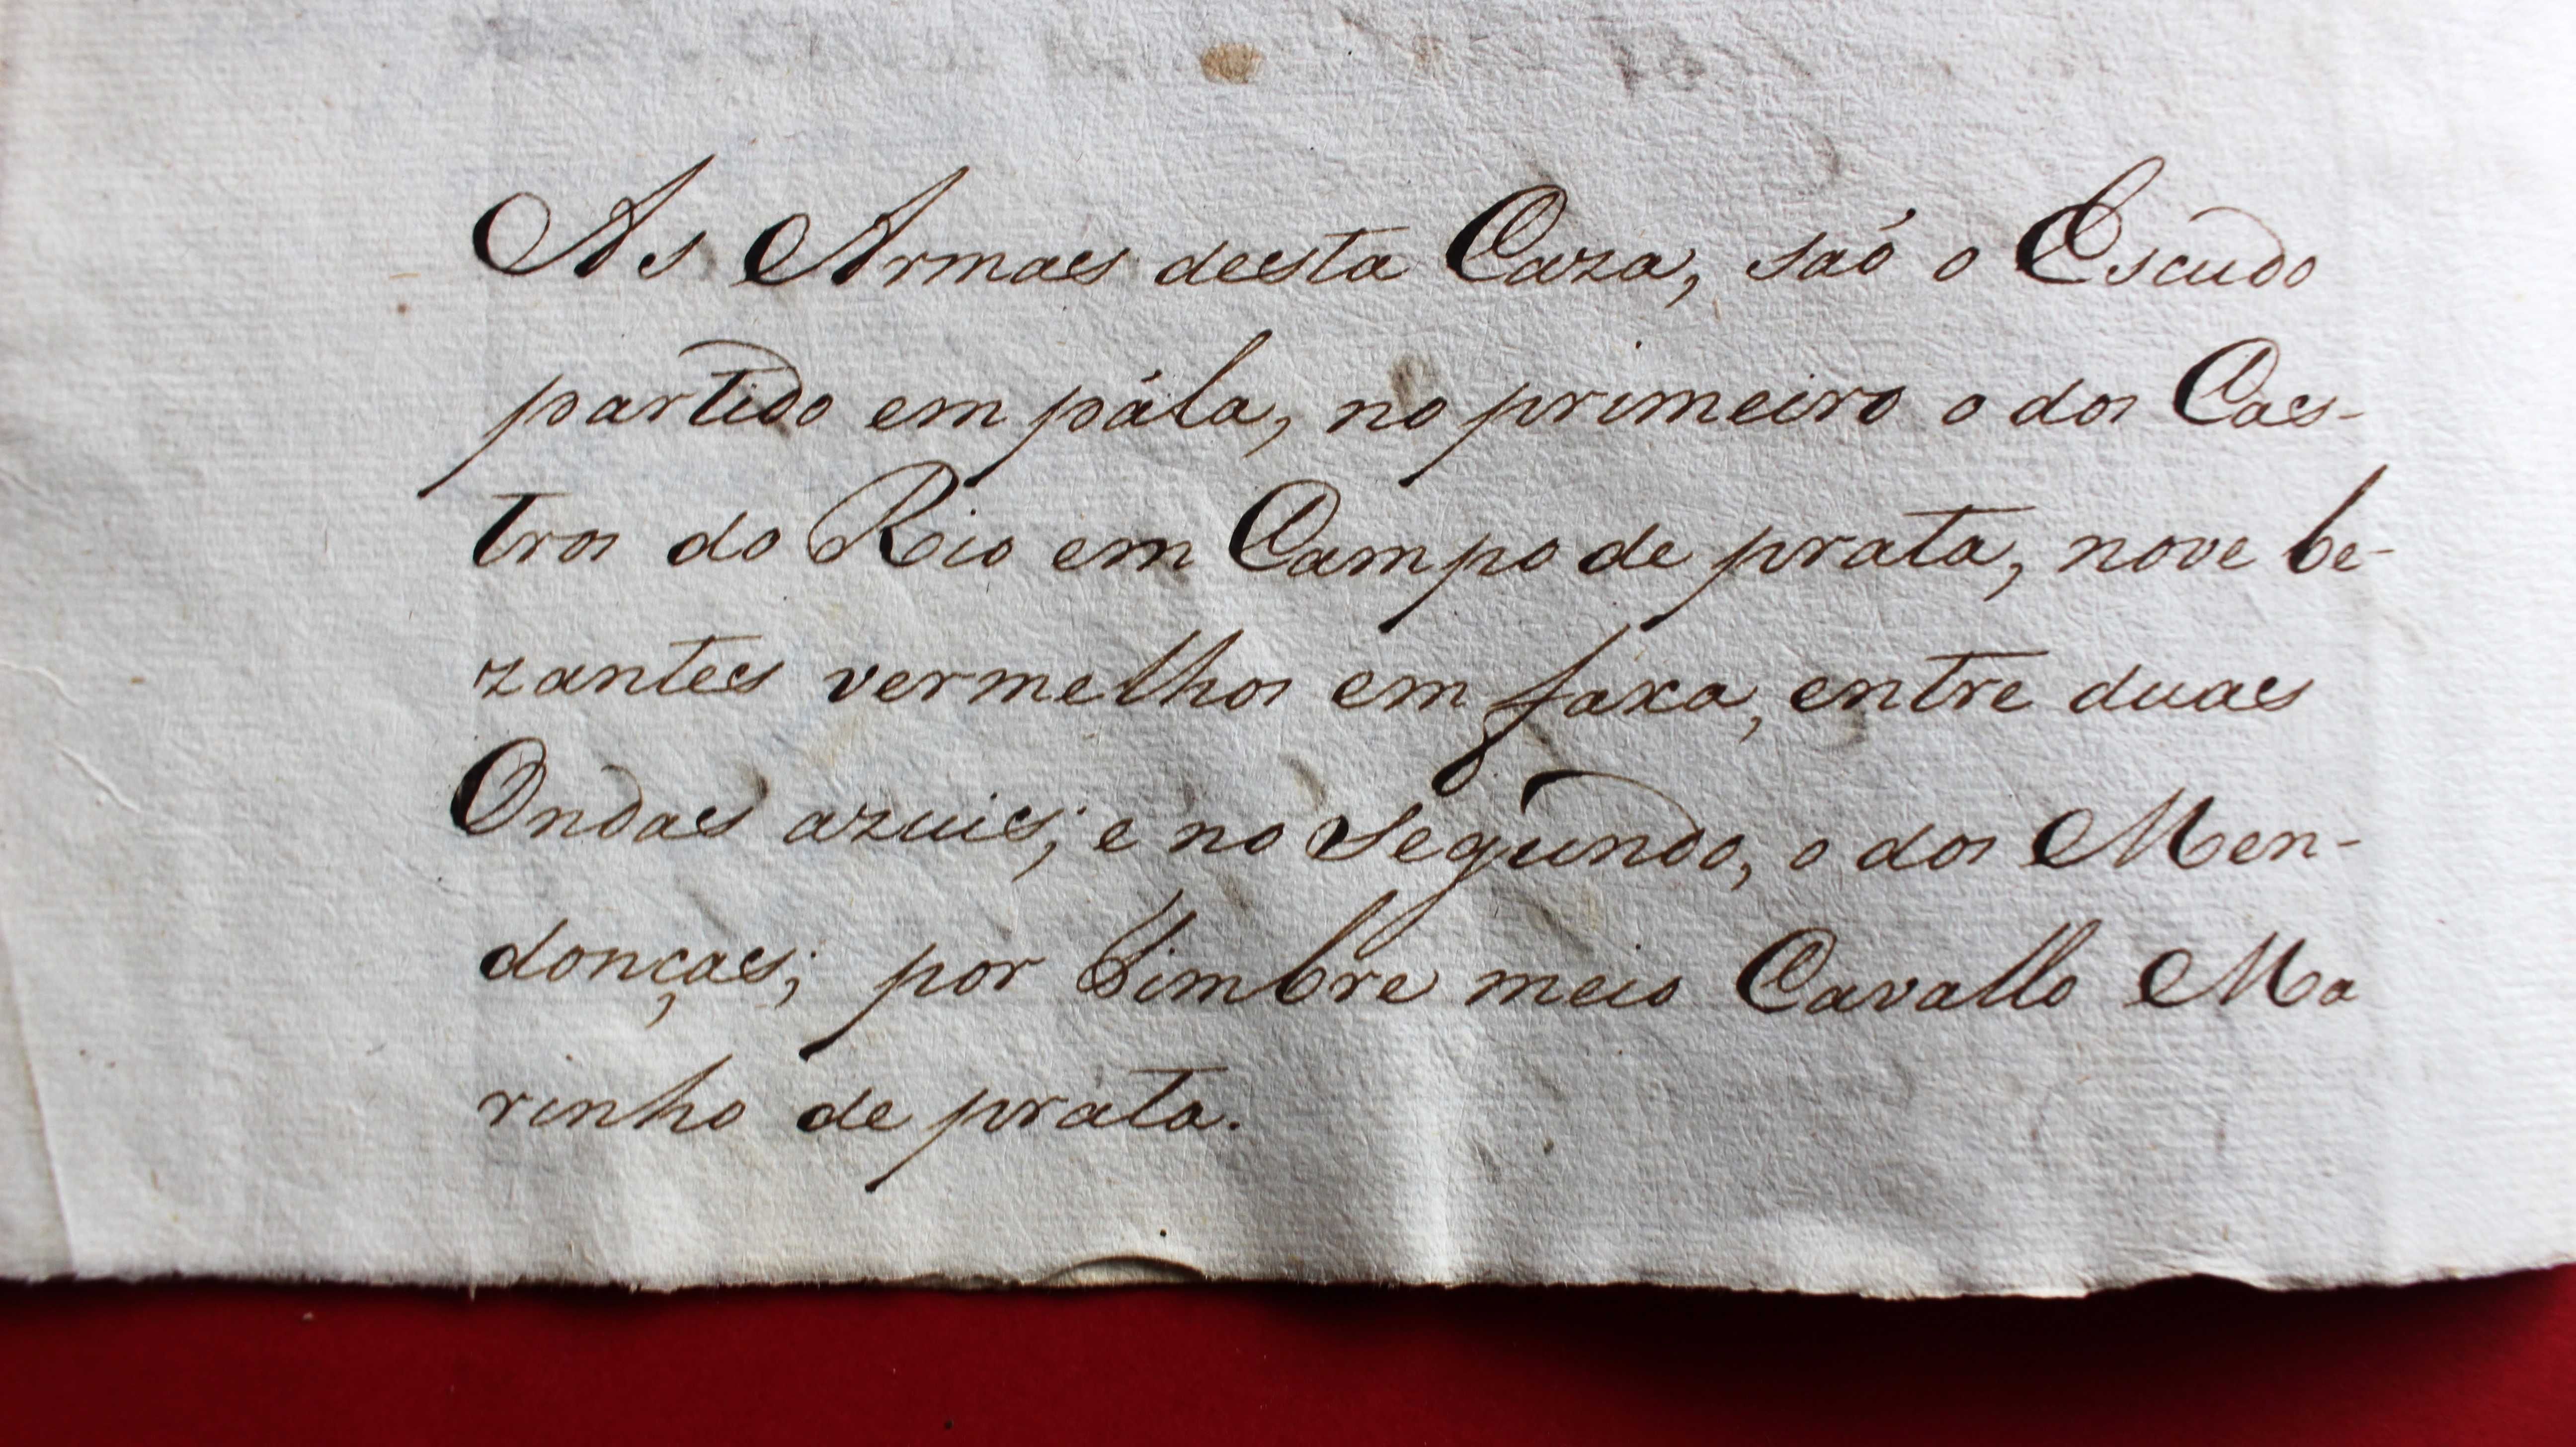 As Armas desta Caza, saó o Escudo
partido em pála, no primeiro o dos Cas-
tros do Rio em Campo de prata, nove be-
zantes vermelhos em faxa, entre duas
Ondas azuis; e no segundo, o dos Men-
donças; por Timbre meio Cavallo Ma
rinho de prata.